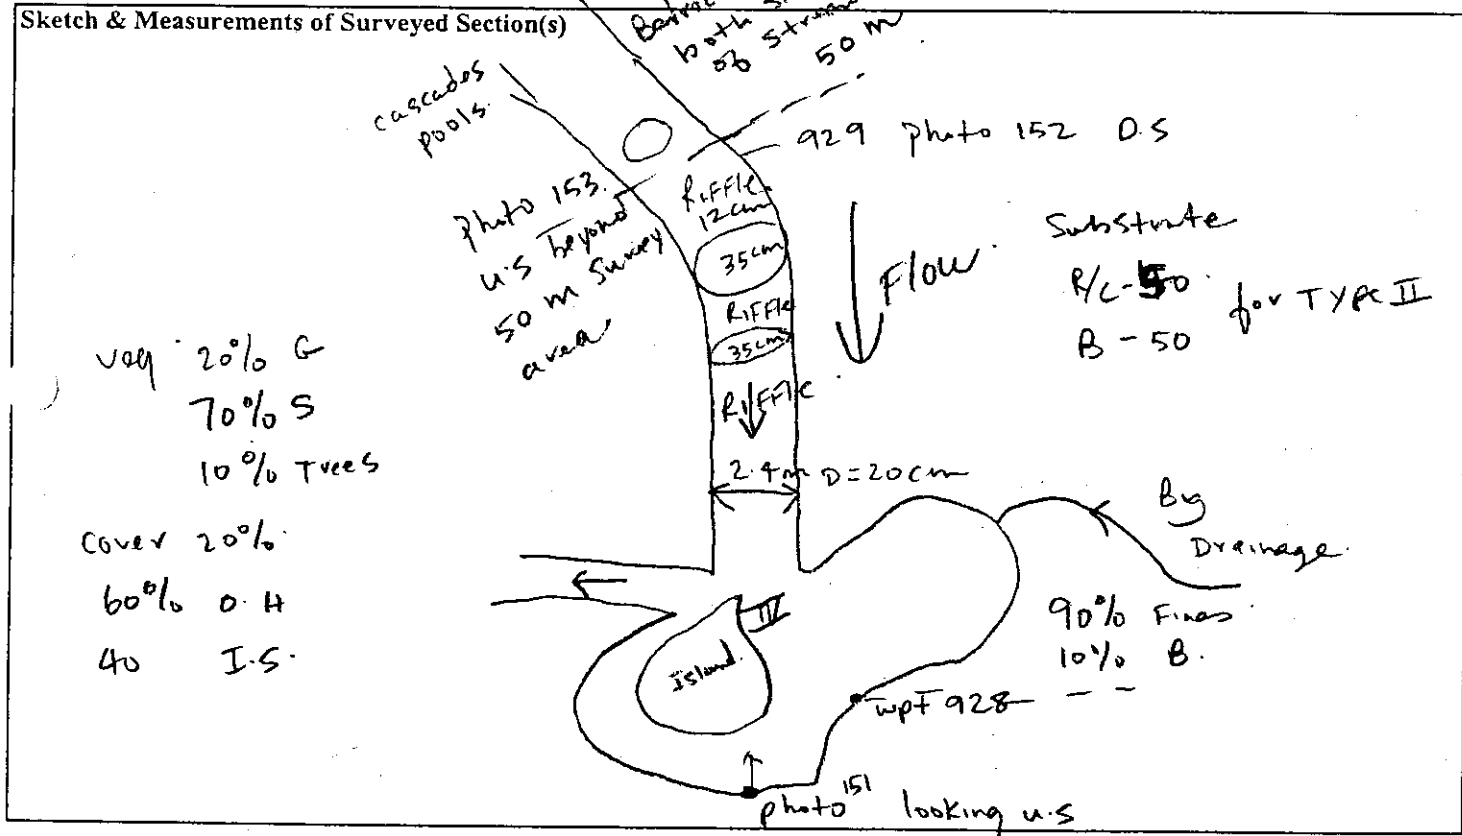 Sketch & Measurements of Surveyed Section(s)
both
of stream
50 m
cascades
pools.
929 photo 152 D.S
photo 153.
u.s beyond
50 m survey
area
RIFFLE
12cm
35cm
RIFFLE
35cm
RIFFLE
Flow
Substrate
R/C-50
B-50
for TYPE II
veg 20% G
70% S
10% Trees
2.4m D=20cm
cover 20%.
60% O.H
40 I.S.
Big
Drainage.
90% Fines
10% B.
Island.
wpt 928
photo 151 looking u.s